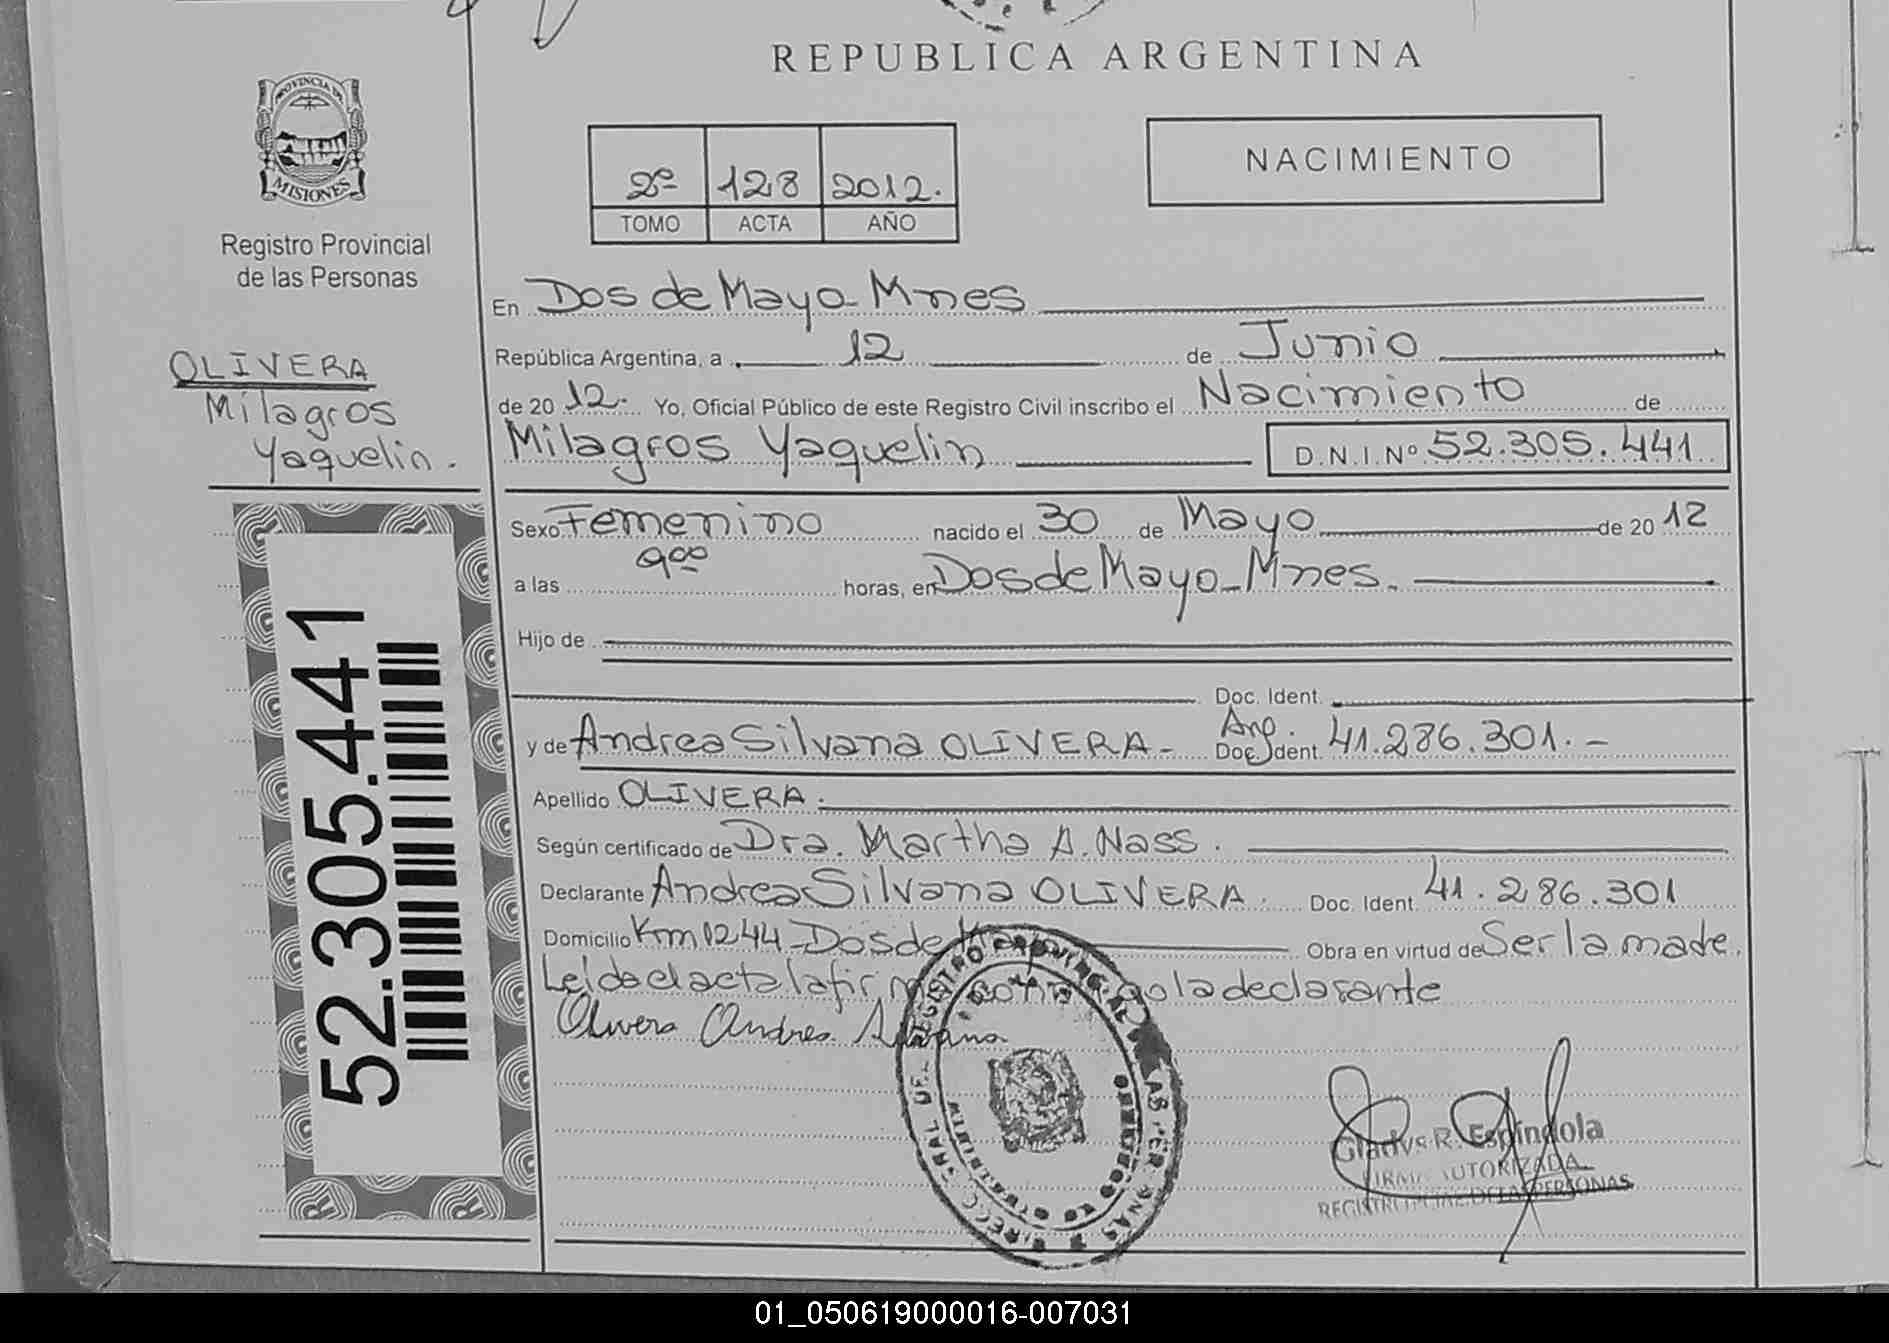 REPUBLICA ARGENTINA
PROVINCIA DE
MISIONES
Registro Provincial
de las Personas
OLIVERA
Milagros
Yaquelin.
52.305.441
2º 128 2012.
TOMO ACTA AÑO
NACIMIENTO
En Dos de Mayo-Mnes
República Argentina, a 12 de Junio
de 20 12. Yo, Oficial Público de este Registro Civil inscribo el Nacimiento de
Milagros Yaquelin D.N.I.Nº 52.305.441
Sexo Femenino nacido el 30 de Mayo de 20 12
a las 9ºº horas, en Dos de Mayo-Mnes.
Hijo de
Doc. Ident.
y de Andrea Silvana OLIVERA- Arg. Doc. Ident. 41.286.301.-
Apellido OLIVERA.
Según certificado de Dra. Martha A. Nass.
Declarante Andrea Silvana OLIVERA. Doc. Ident. 41.286.301
Domicilio Km 1244-Dos de Mayo Obra en virtud de Ser la madre.
Leida el acta la firma la declarante
Olivera Andrea Silvana
Gladys R. Espíndola
FIRMA AUTORIZADA
REGISTRO PCIAL. DE LAS PERSONAS
01_050619000016-007031